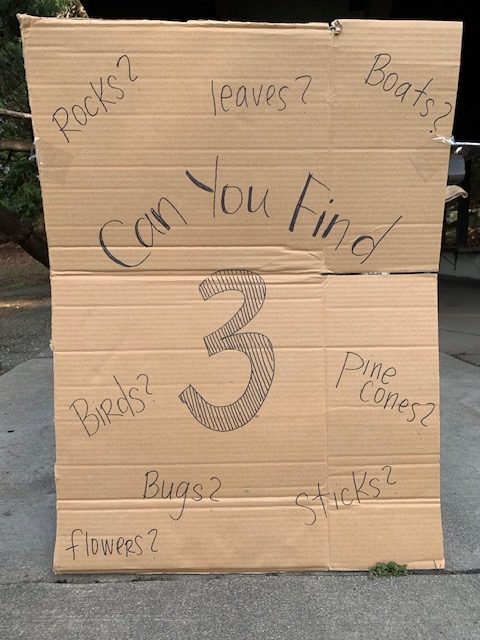 Rocks?
leaves?
Boats?
Can You Find
3
Birds?
Pine
Cones?
Bugs?
Sticks?
flowers?